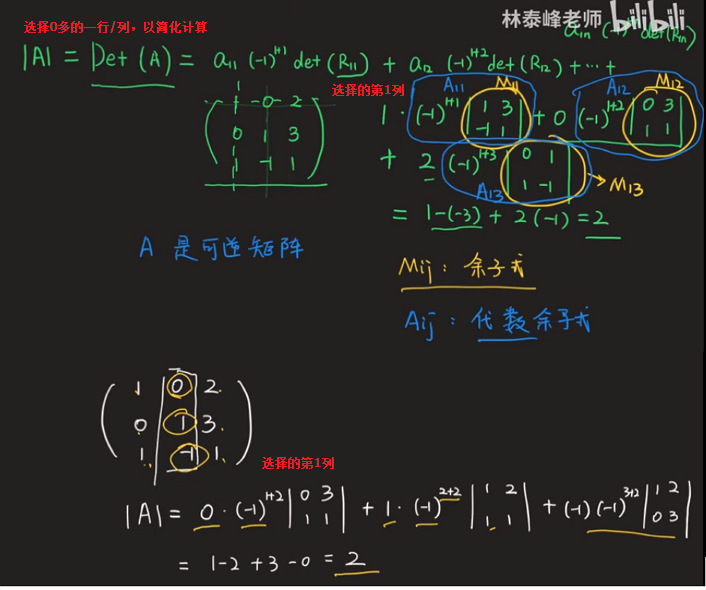 选择0多的一行/列，以简化计算
林泰峰老师 bilibili
|A| = Det (A) = a₁₁ (-1)¹⁺¹ det(R₁₁) + a₁₂ (-1)¹⁺² det(R₁₂) + ⋯ +
a₁ₙ (-1) det(R₁ₙ)
选择的第1列
A₁₁ M₁₁ A₁₂ M₁₂
1 0 2
0 1 3
1 -1 1
1 · (-1)¹⁺¹ | 1 3 ; -1 1 | + 0 (-1)¹⁺² | 0 3 ; 1 1 |
+ 2 (-1)¹⁺³ | 0 1 ; 1 -1 |
A₁₃ → M₁₃
= 1-(-3) + 2(-1) = 2
A 是可逆矩阵
Mij : 余子式
Aij : 代数余子式
1 0 2
0 1 3
1 -1 1
选择的第1列
|A| = 0 · (-1)¹⁺² | 0 3 ; 1 1 | + 1 · (-1)²⁺² | 1 2 ; 1 1 | + (-1)(-1)³⁺² | 1 2 ; 0 3 |
= 1-2+3-0 = 2